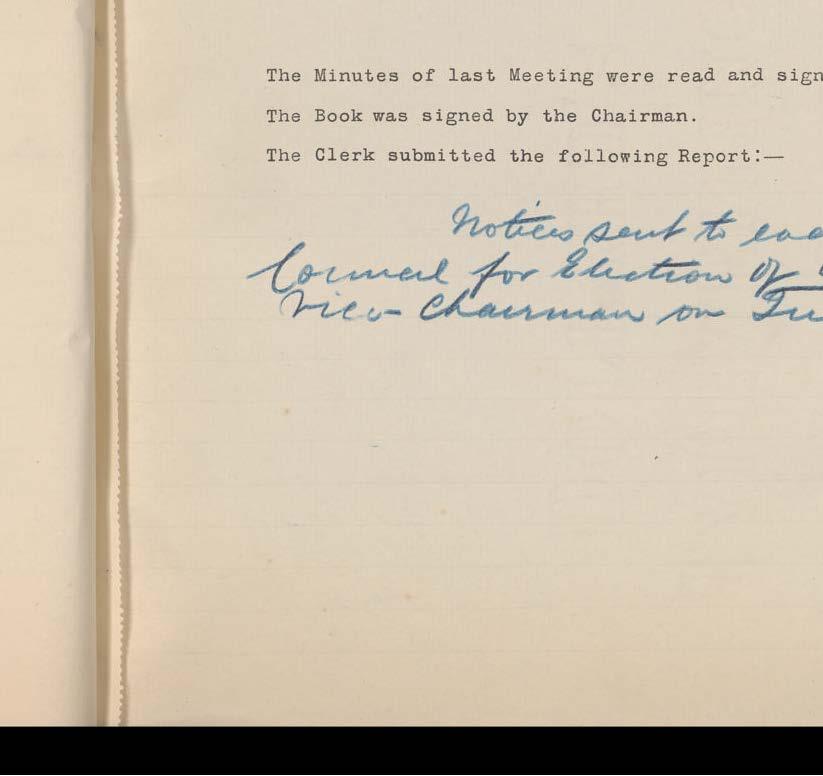 The Minutes of last Meeting were read and sign
The Book was signed by the Chairman.
The Clerk submitted the following Report:—
Notices sent to
Council for Election of
Vice-Chairman on